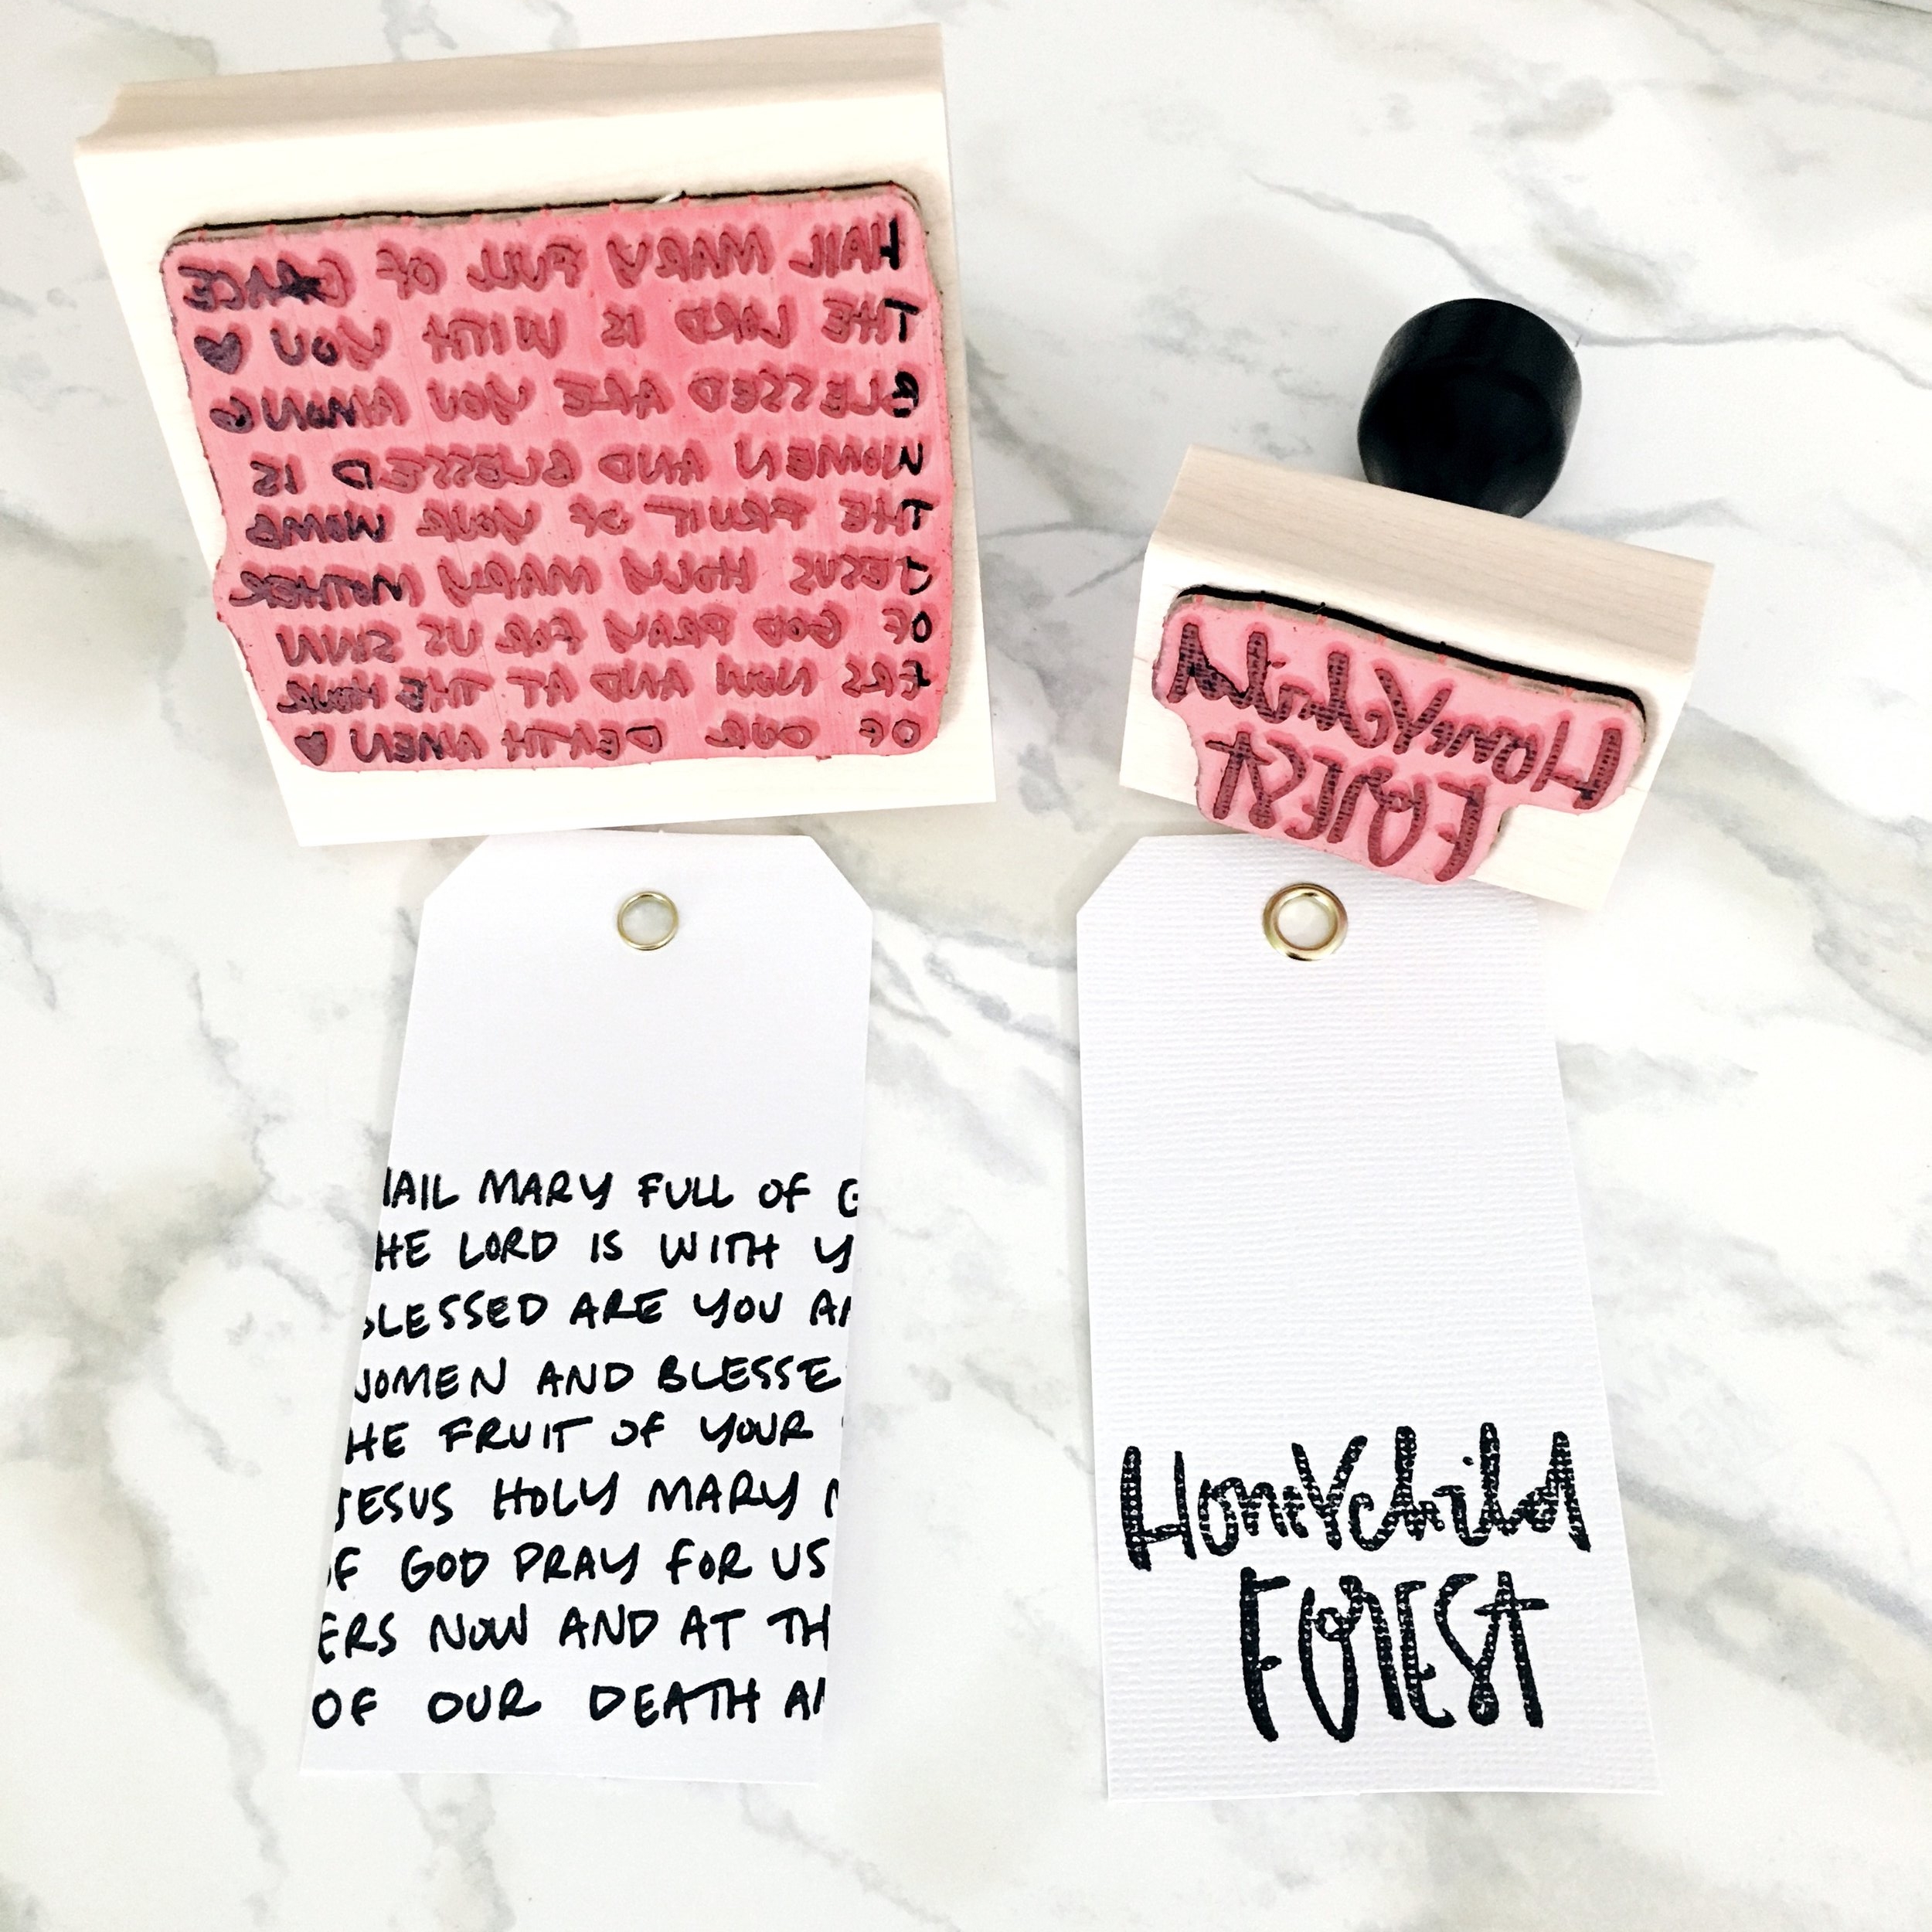 HAIL MARY FULL OF GRACE
THE LORD IS WITH YOU ♥
BLESSED ARE YOU AMONG
WOMEN AND BLESSED IS
THE FRUIT OF YOUR WOMB
JESUS HOLY MARY MOTHER
OF GOD PRAY FOR US SINN
ERS NOW AND AT THE HOUR
OF OUR DEATH AMEN ♥
HoneYchild
FOREST
HAIL MARY FULL OF G
HE LORD IS WITH Y
BLESSED ARE YOU A
WOMEN AND BLESSE
HE FRUIT OF YOUR
JESUS HOLY MARY
OF GOD PRAY FOR US
ERS NOW AND AT TH
OF OUR DEATH A
HoneYchild
FOREST